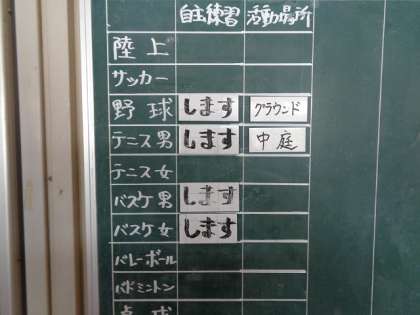 自主練習 活動場所
陸上
サッカー
野球 します グラウンド
テニス男 します 中庭
テニス女
バスケ男 します
バスケ女 します
バレーボール
バドミントン
卓球